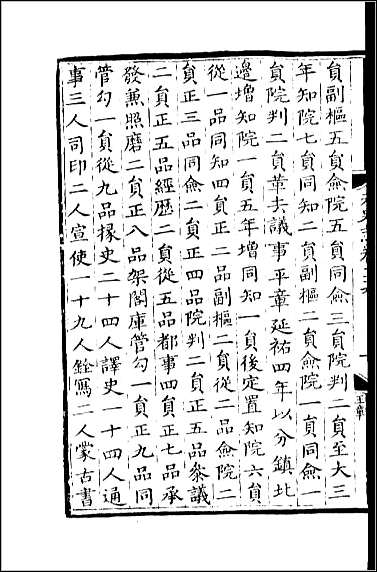 員副樞五員僉院五員同僉三員院判二員至大三
年知院七員同知二員副樞二員僉院一員同僉一
員院判二員革去議事平章延祐四年以分鎮北
邊增知院一員五年增同知一員後定置知院六員
從一品同知四員正二品副樞二員從二品僉院二
員正三品同僉二員正四品院判二員正五品參議
二員正五品經歷二員從五品都事四員正七品承
發兼照磨二員正八品架閣庫管勾一員正九品同
管勾一員從九品掾史二十四人譯史一十四人通
事三人司印二人宣使一十九人銓寫二人蒙古書